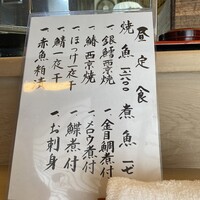 昼定食
焼魚 一六〇〇
一、銀鱈西京焼
一、鰆西京焼
一、ほっけ一夜干
一、鯖一夜干
一、赤魚粕
煮魚 一七
一、金目鯛煮付
一、メロウ煮付
一、鰈煮付
一、お刺身